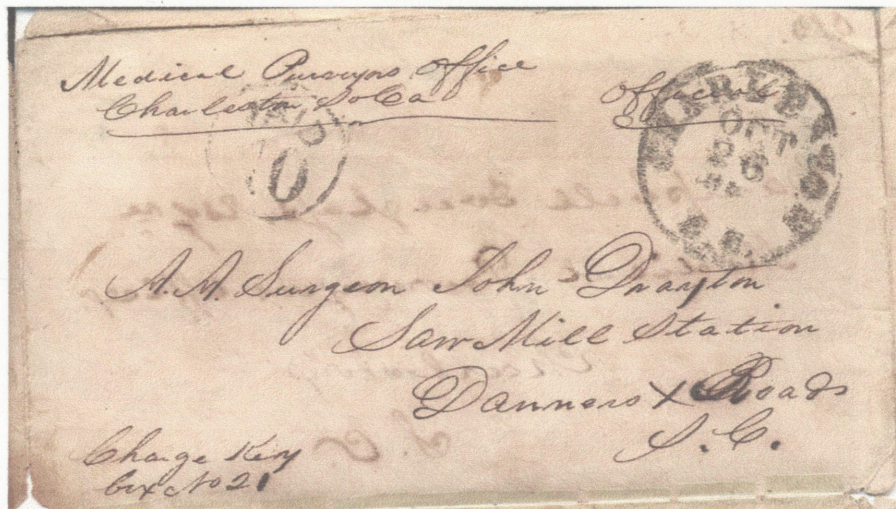 Medical Purveyors Office
Charleston So Ca
Official
PAID
10
CHARLESTON
OCT
6
S.C.
A. A. Surgeon John Drayton
Saw Mill Station
Danners X Roads
S. C.
Charge Key
Box No 21